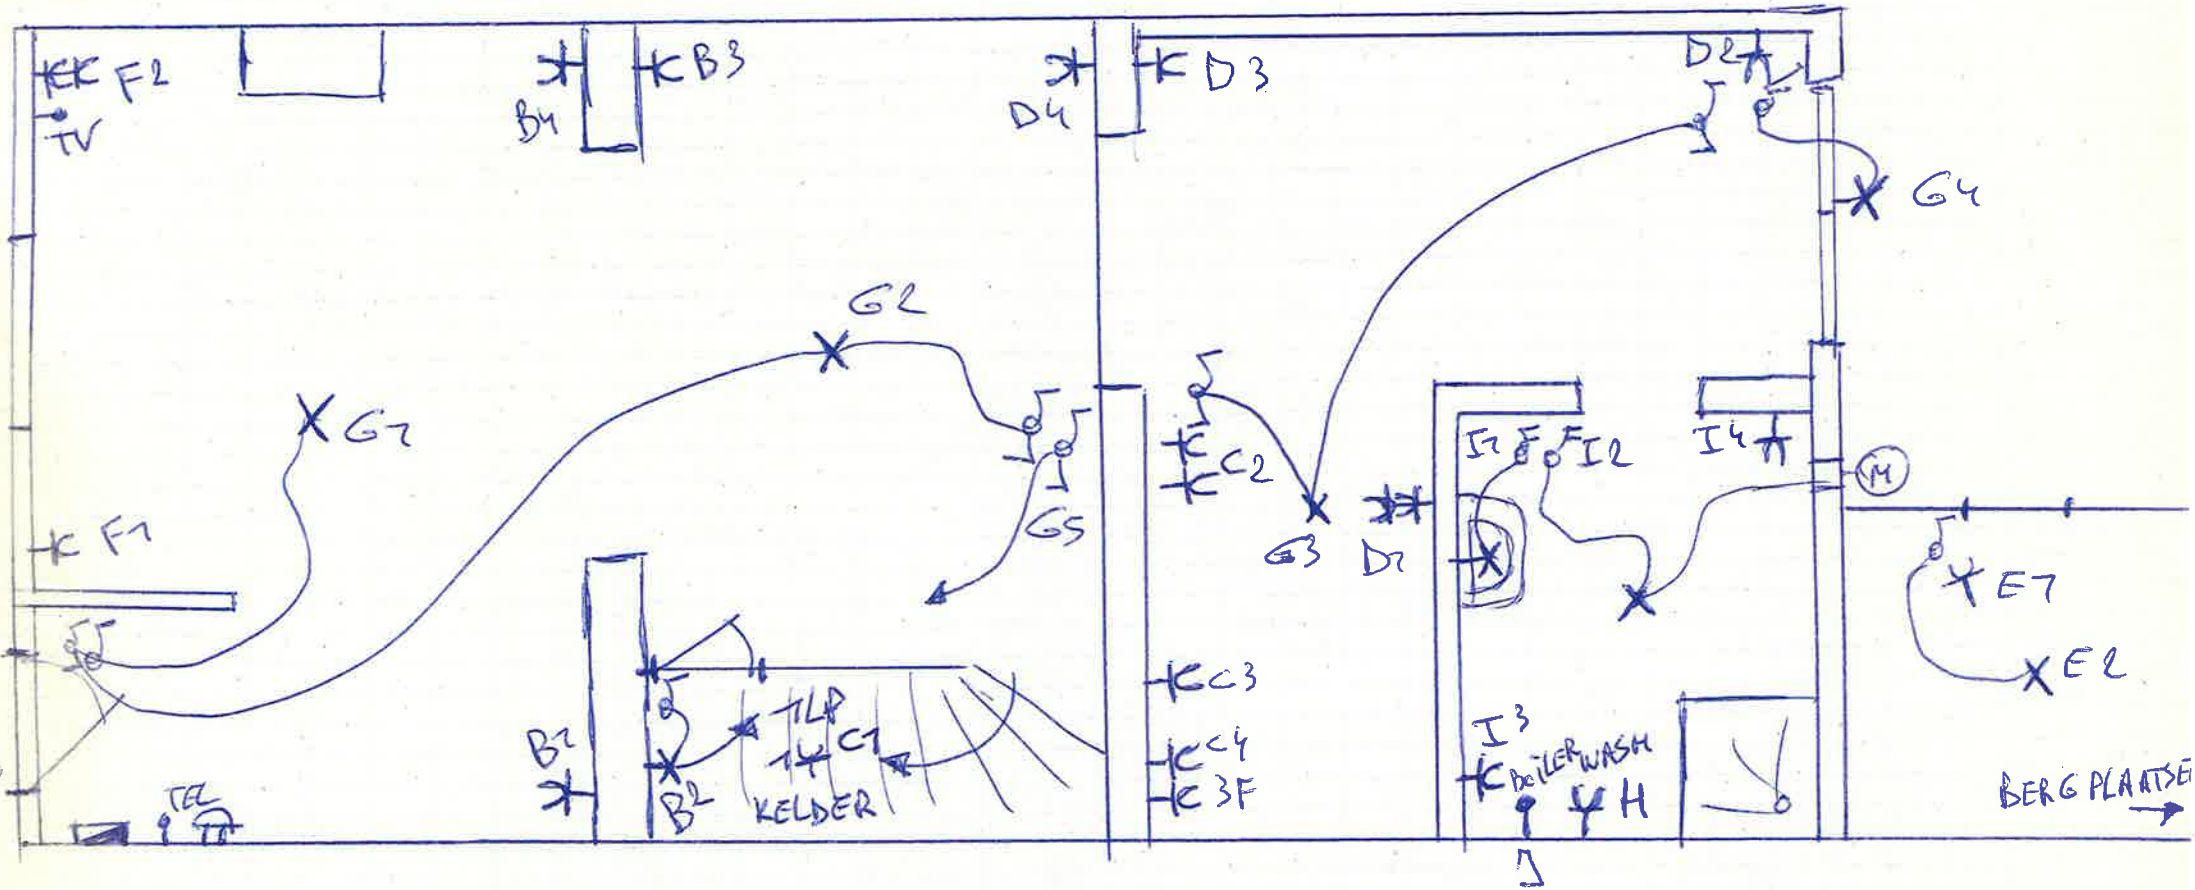 F2
TV
B4
B3
D4
D3
D2
G4
G2
G1
F1
G5
C2
G3
D1
I1
I2
I4
M
E1
E2
C3
C4
3F
I3
BOILER
WASH
H
J
B1
B2
1LP
C1
KELDER
TEL
BERGPLAATSE